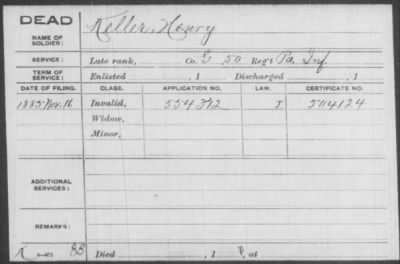 DEAD
NAME OF SOLDIER: Keller, Henry
SERVICE: Late rank, Co. G, 50 Reg't Pa. Inf.
TERM OF SERVICE: Enlisted , 1 Discharged , 1
DATE OF FILING. CLASS. APPLICATION NO. LAW. CERTIFICATE NO.
1885 Nov. 16 Invalid, 554,392 J 504124
Widow,
Minor,
ADDITIONAL SERVICES:
REMARKS:
Died , 1 , at